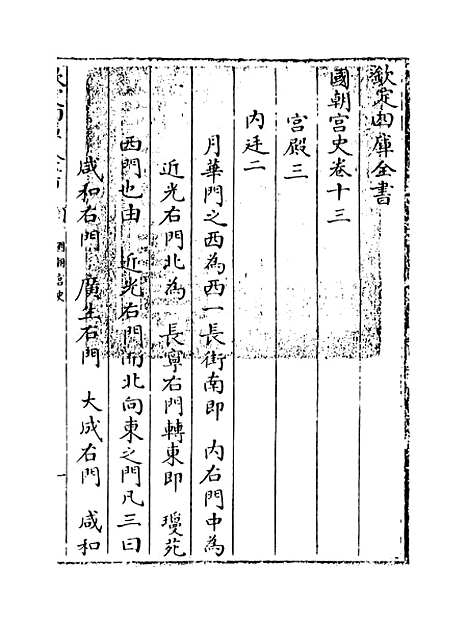 欽定四庫全書
國朝宮史卷十三
宮殿三
内廷二
月華門之西為西一長街南即 内右門中為
近光右門北為 長寧右門轉東即 瓊苑
西門也由 近光右門而北向東之門凡三曰
咸和右門 廣生右門 大成右門 咸和
國朝宮史
一